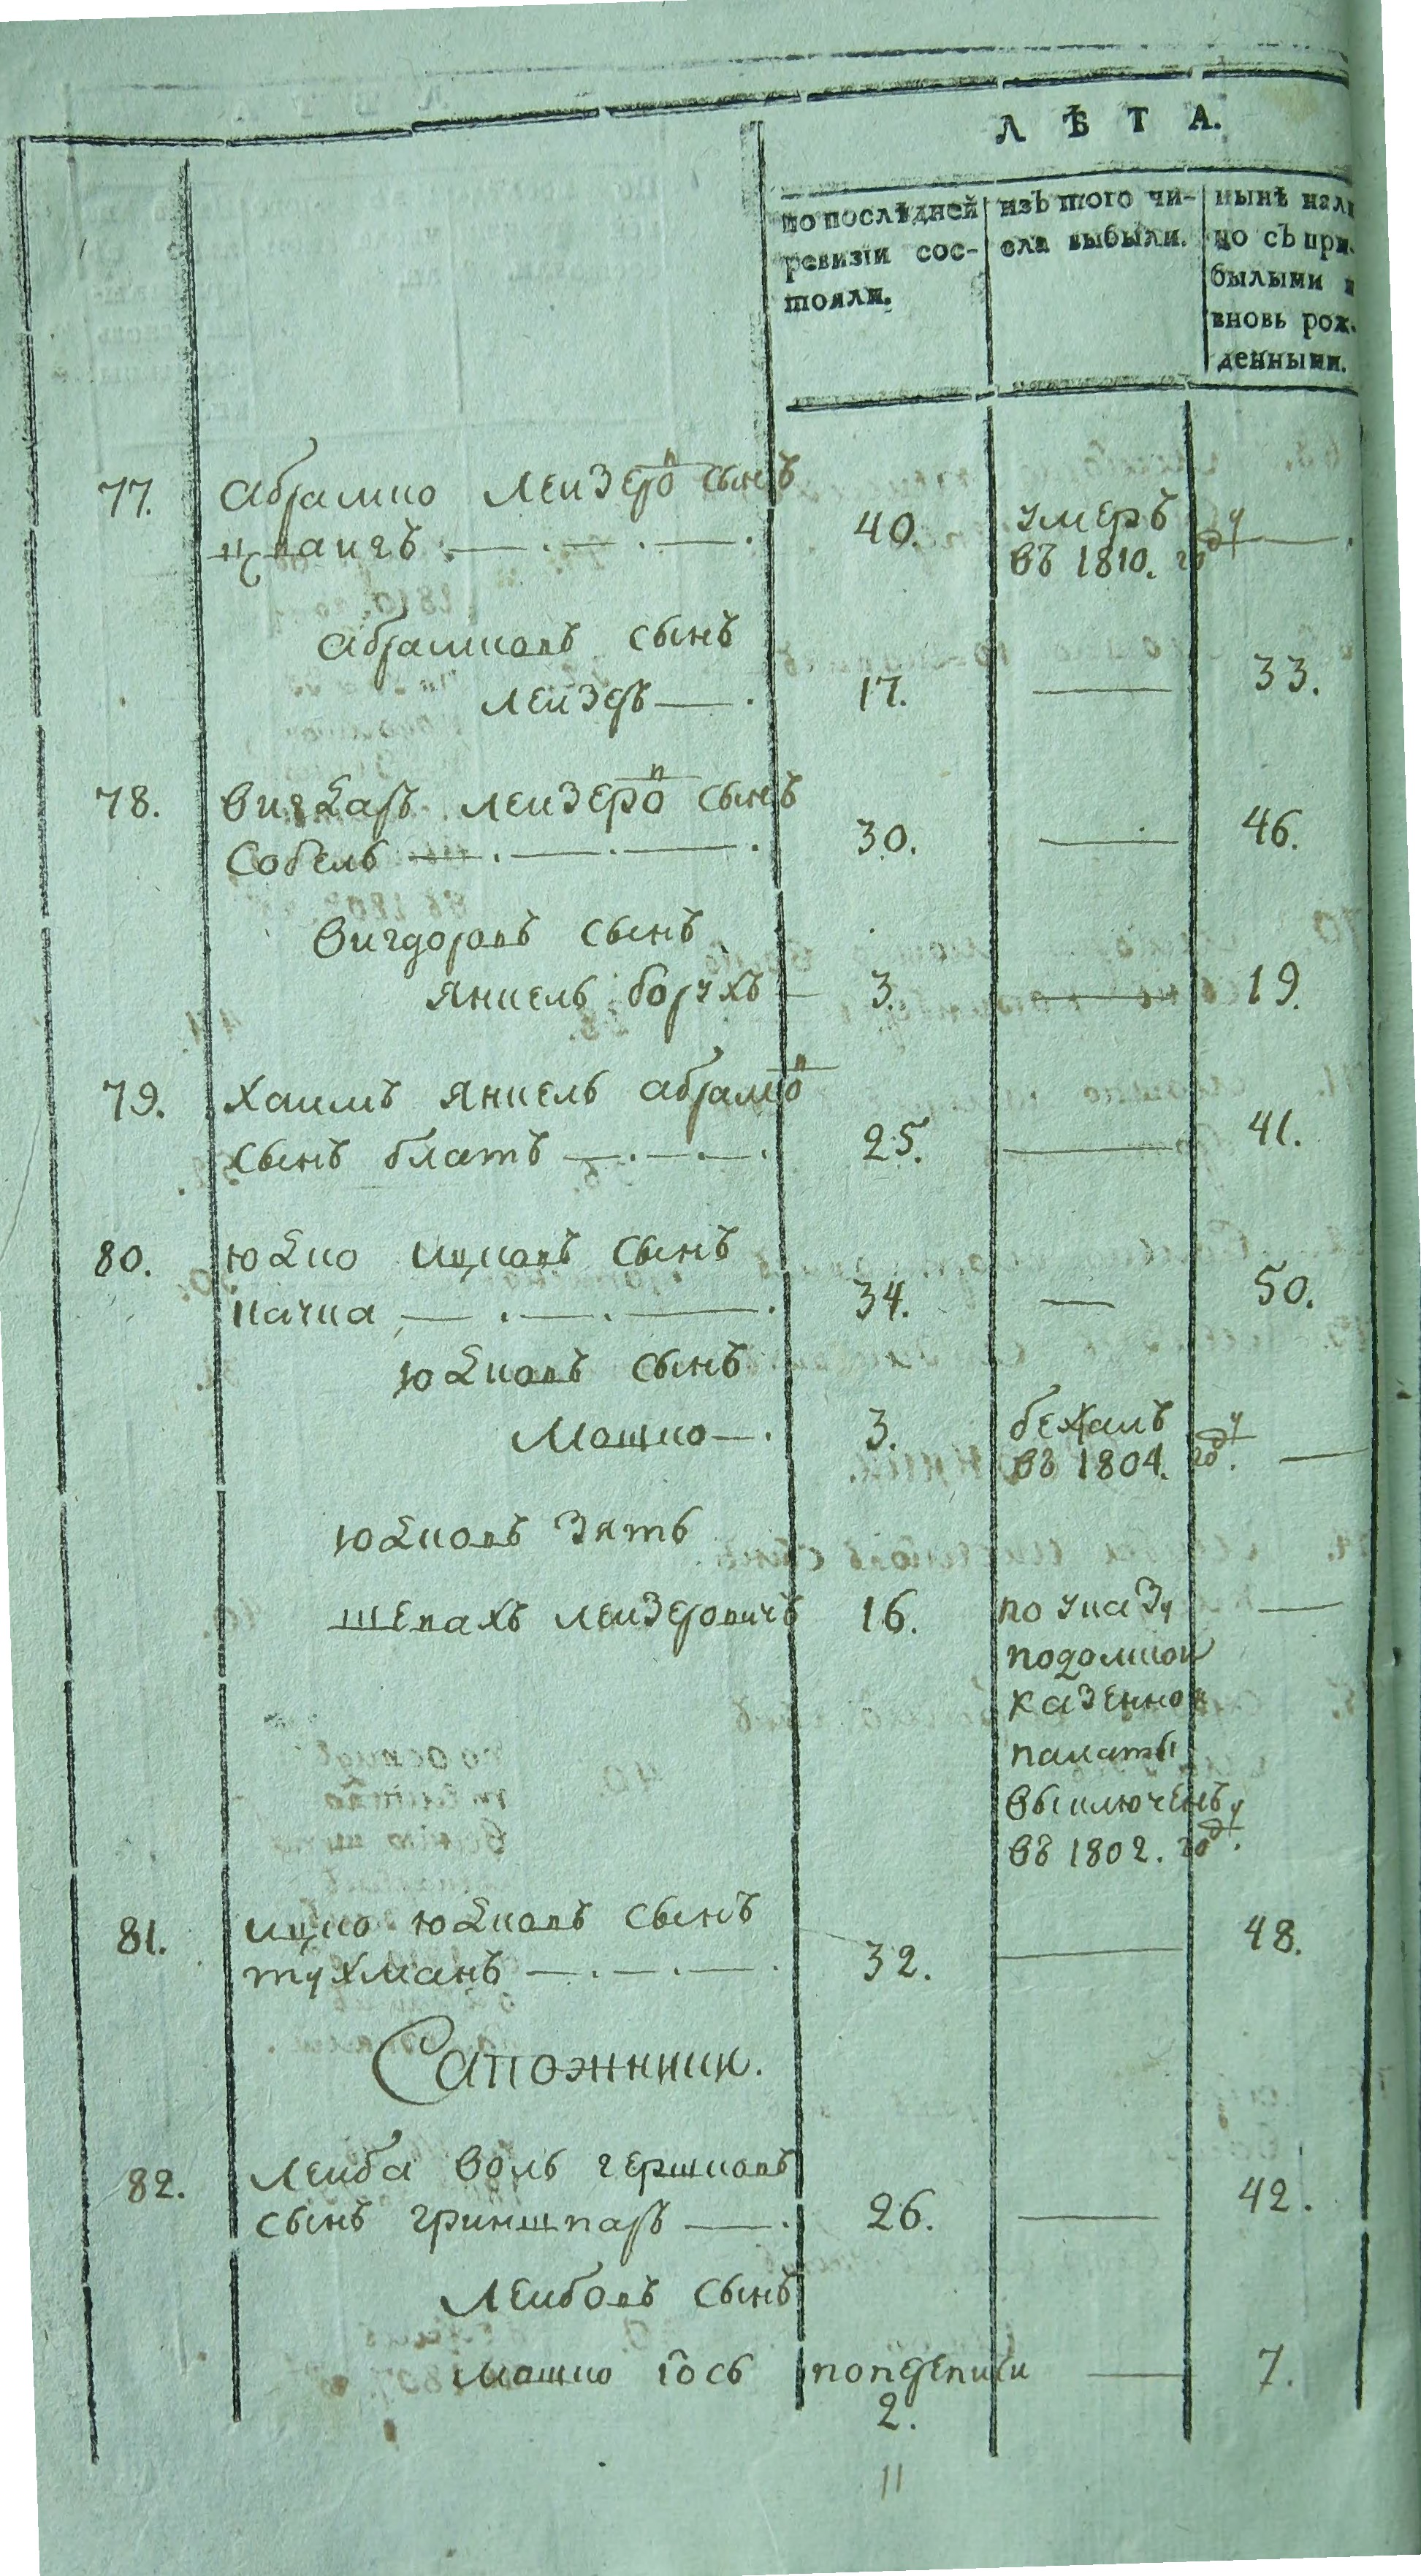 ЛѢТА.
по послѣдней ревизіи состояли.
изъ того числа выбыли.
ныне нали
цо съ при-
былыми и
вновь рож-
денными.
77. Абрамко Лейзеров сынъ
Цвайгъ 40. умеръ
въ 1810. году
Абрамковъ сынъ
Лейзеръ 17. 33.
78. Вигдаръ Лейзеров сынъ
Собель 30. 46.
Вигдоровъ сынъ
Янкель Борухъ 3. 19.
79. Хаимъ Янкель Абрамов
сынъ Блатъ 25. 41.
80. Юдко Ицковъ сынъ
34. 50.
Юдковъ сынъ
Мошко 3. бежалъ
въ 1804. году.
Юдковъ зять
Шепахъ Лейзеровичъ 16. по указу
подолской
казенной
палаты
выключенъ
въ 1802. году.
81. Ицко Юдковъ сынъ 48.
Тухманъ 32.
Сапожники.
82. Лейба Воль Гершковъ
сынъ Гриншпаръ 26. 42.
Лейбовъ сынъ
Мошко Іось попереписи 7.
2.
11